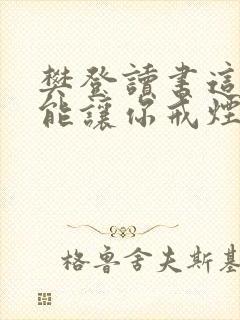 樊登讀書這
能讓你戒煙
格魯舍夫斯基